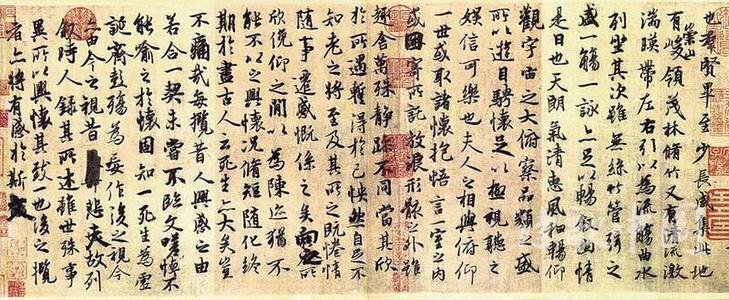 也羣賢畢至少長咸集此地
有崇山峻領茂林脩竹又有清流激
湍暎帶左右引以為流觴曲水
列坐其次雖無絲竹管弦之
盛一觴一詠亦足以暢敘幽情
是日也天朗氣清惠風和暢仰
觀宇宙之大俯察品類之盛
所以遊目騁懷足以極視聽之
娛信可樂也夫人之相與俯仰
一世或取諸懷抱悟言一室之內
或因寄所託放浪形骸之外雖
趣舍萬殊靜躁不同當其欣
於所遇蹔得於己怏然自足不
知老之將至及其所之既惓情
隨事遷感慨係之矣向之所
欣俛仰之間以為陳迹猶不
能不以之興懷況脩短隨化終
期於盡古人云死生亦大矣豈
不痛哉每攬昔人興感之由
若合一契未嘗不臨文嗟悼不
能喻之於懷固知一死生為虛
誕齊彭殤為妄作後之視今
亦由今之視昔悲夫故列
敘時人錄其所述雖世殊事
異所以興懷其致一也後之攬
者亦將有感於斯文